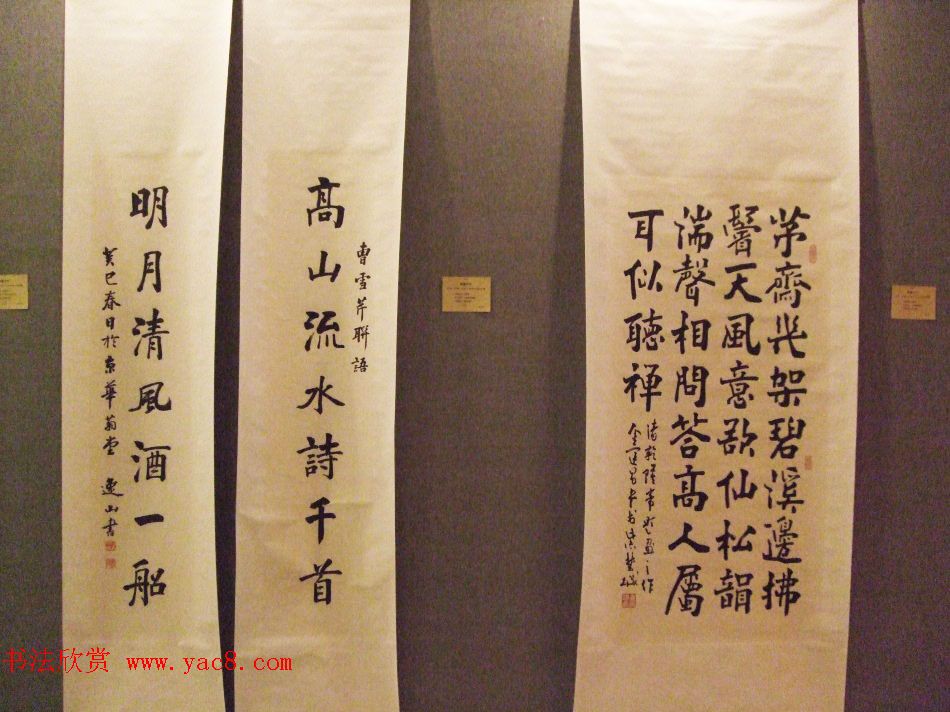 茅齋幾架碧溪邊拂
鬐天風意欲仙松韻
湍聲相問答高人屬
耳似聽禅
清乾隆帝
之作
曹雪芹聯語
高山流水詩千首
明月清風酒一船
癸巳春日於京華菊堂 逸山書
书法欣赏 www.yac8.com